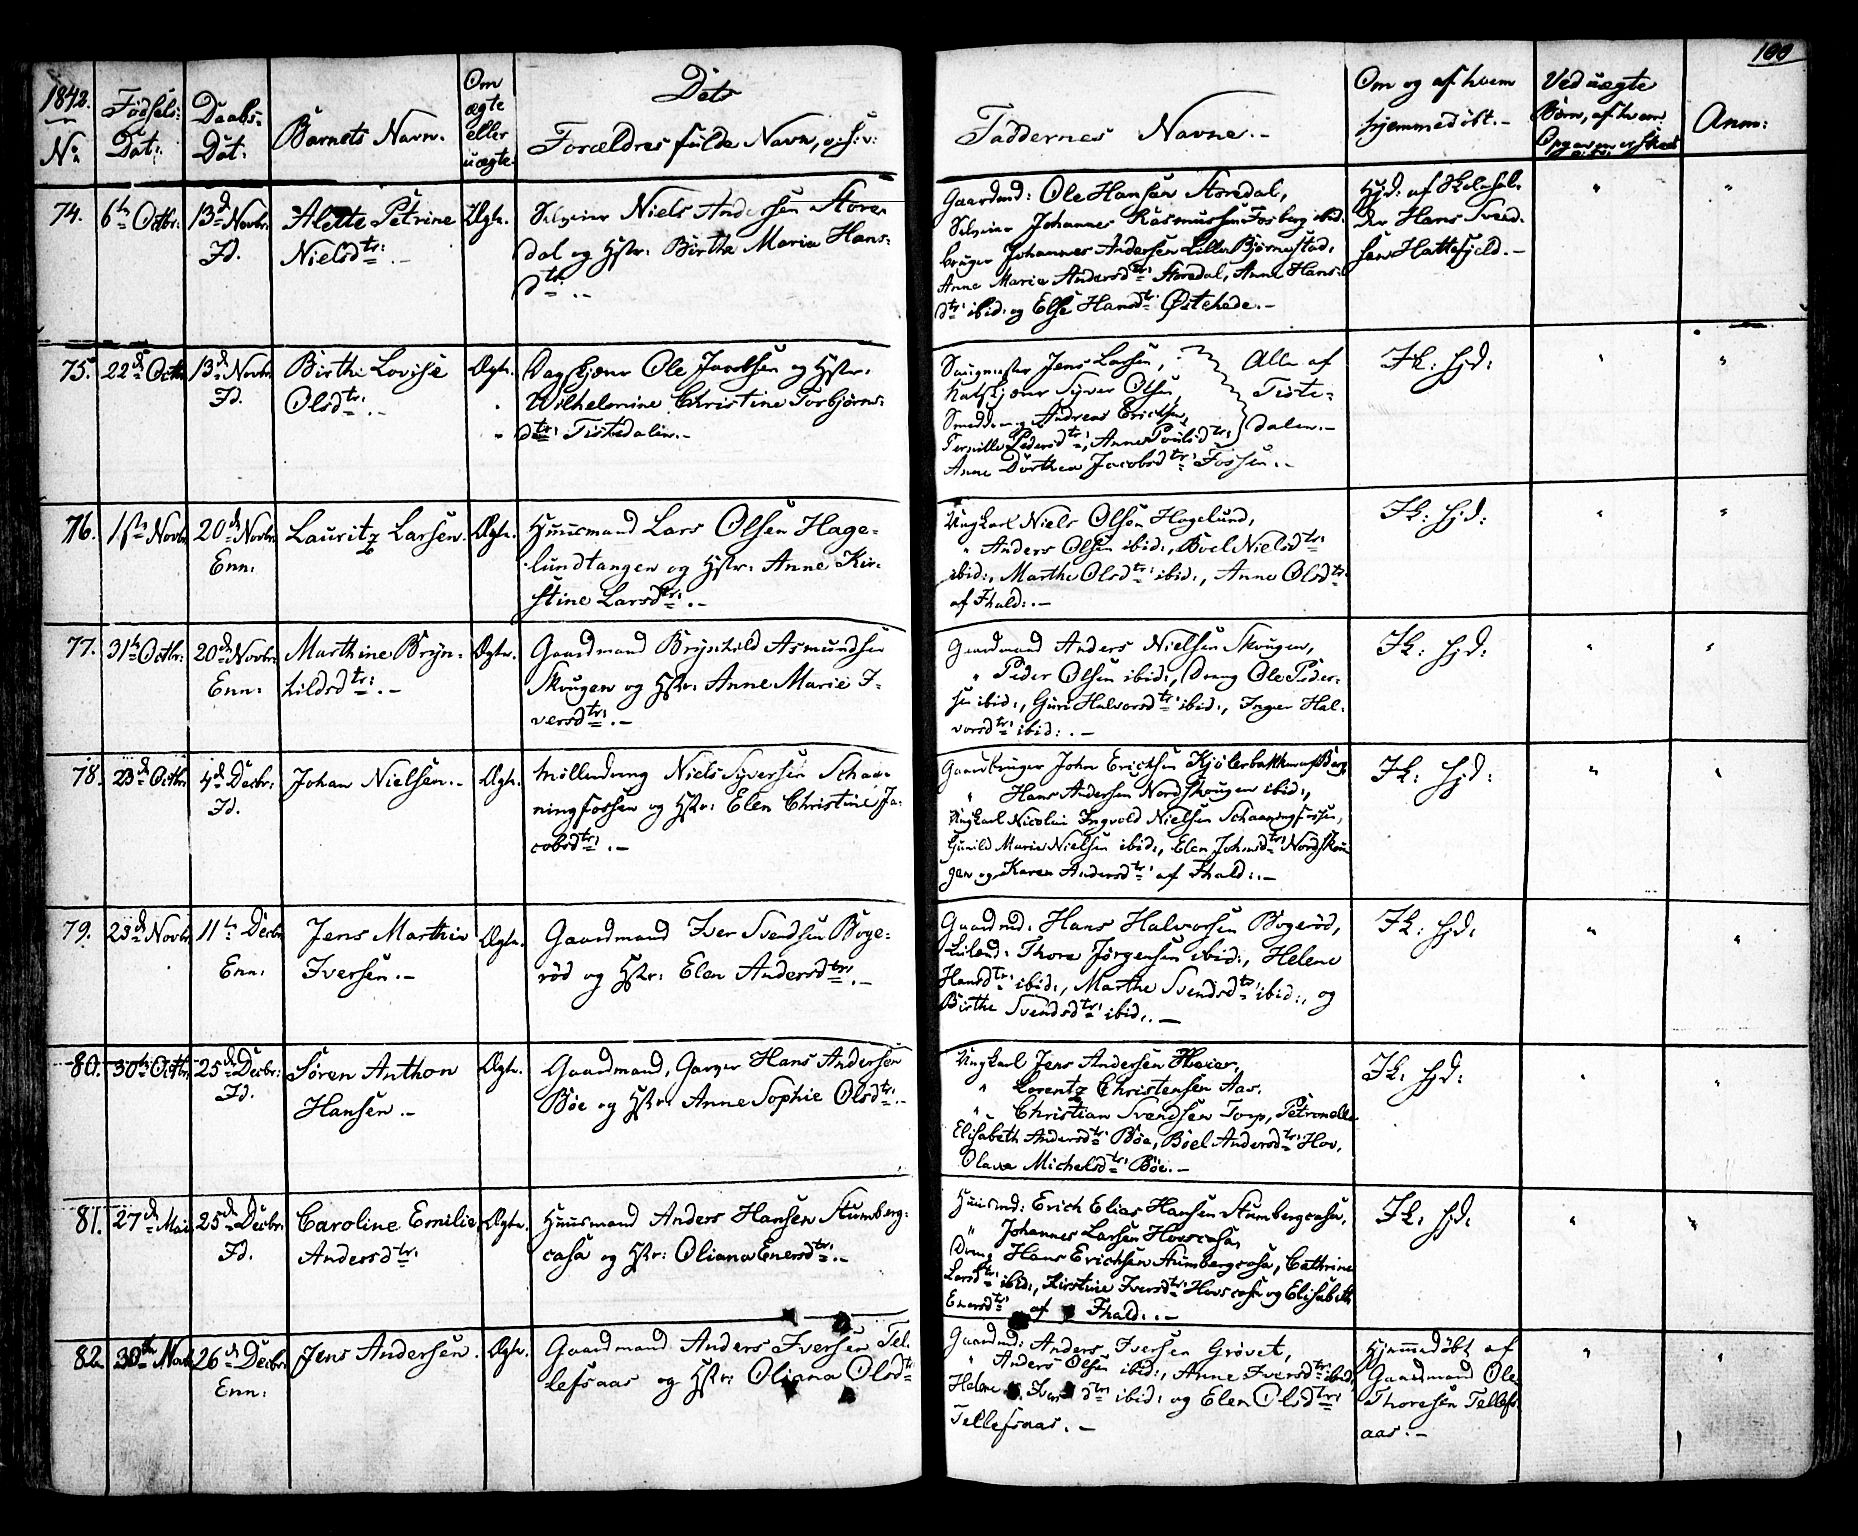 100
1842.
No
Fødsels-
Dat:
Daabs-
Dat:
Barnets Navn.
Om
ægte
eller
uægte
Dets
Forældres fulde Navn, o: s: v:
Faddernes Navne.-
Om og af hvem
hjemmedøbt.-
Ved uægte
Børn, af hvem
Anm:
74.
6te Octbr:
13de Novbr:
Fd.
Alette Petrine
Nielsdtr: -
Ægte.
Selveier Niels Andersen Store-
dal og Hstr: Birthe Maria Hans-
dtr: -
Gaardmd: Ole Hansen Storedal,
Selveier Johannes Rasmussen Fosberg ibid:
bruger Johannes Andersen Lille Bjørnestad,
Anne Maria Andersdtr: Storedal, Anne Hans-
dtr: ibid: og Else Hansdtr: Østehede.-
Hjd: af Skolehol-
der Hans Svend-
sen Hattefjeld.-
75.
22de Octbr:
13de Novbr:
Fd.
Birthe Lovise
Olsdtr: -
Ægte.
Dagskjører Ole Jacobsen og Hstr:
Wilhelmine Christine Torbjørns-
dtr: Tistedalen.-
Saugmester Jens Larsen,
Syver Olsen,
Smeddreng Andreas Ericksen,
Pernille Pedersdtr:, Anne Poulsdtr:
Anne Dorthea Jacobsdtr: Fossen.-
Alle af
Tiste-
dalen.-
Ik: hjd:
76.
1ste Novbr:
20de Novbr:
Enn:
Lauritz Larsen.
Ægte.
Huusmand Lars Olsen Hage-
lundtangen og Hstr: Anne Kir-
stine Larsdtr: -
Ungkarl Niels Olsen Hagelund,
" Anders Olsen ibid:, Boel Nielsdtr:
ibid:, Marthe Olsdtr: ibid:, Anne Olsdtr:
af Fhald: -
Ik: hjd:
77.
31te Octbr:
20de Novbr:
Enn:
Marthine Bryn-
hildsdtr: -
Ægte.
Gaardmand Brynhild Asmundsen
Skougen og Hstr: Anne Marie I-
versdtr: -
Gaardmand Anders Nielsen Skougen,
" Peder Olsen ibid:, Dreng Ole Peder-
sen ibid:, Guri Halvorsdtr: ibid:, Inger Hal-
vorsdtr: ibid: -
Ik: hjd:
78.
23de Octbr:
4de Decbr:
Fd.
Johan Nielsen.-
Ægte.
Mølledreng Niels Syversen Schaa-
ningfossen og Hstr: Elen Christine Ja-
cobsdtr: -
Gaardbruger John Ericksen Kjølerbakken af Berg,
" Hans Andersen Nordskougen ibid:,
Ungkarl Nicolai Ingvold Nielsen Schaaningfossen,
Gunild Maria Nielsen ibid:, Elen Johnsdtr: Nordskou-
gen og Karen Andersdtr: af Fhald: -
Ik: hjd:
79.
23de Novbr:
11te Decbr:
Enn:
Jens Marthin
Iversen.-
Ægte.
Gaardmand Iver Svendsen Boge-
rød og Hstr: Elen Andersdtr: -
Gaardmd: Hans Halvorsen Bogerød,
Leilend: Thore Jørgensen ibid:, Helene
Hansdtr: ibid:, Marthe Svendsdtr: ibid:, og
Birthe Svendsdtr: ibid: -
Ik: hjd:
80.
30te Octbr:
25de Decbr:
Fd.
Søren Anthon
Hansen.-
Ægte.
Gaardmand, Garver Hans Andersen
Bøe og Hstr: Anne Sophie Olsdtr: -
Ungkarl Jens Andersen
" Lorentz Christensen Aas.
" Christian Svendsen Torp, Petronelle
Elisabeth Andersdtr: Bøe, Boel Andersdtr: Hov,
Olava Michelsdtr: Bøe.-
Ik: hjd:
81.
27de Mai
25de Decbr:
Fd.
Caroline Emilie
Andersdtr:
Ægte.
Huusmand Anders Hansen Stumberg-
casa og Hstr: Oliana Enersdtr: -
Huusmd: Erich Elias Hansen Stumbergcasa,
" Johannes Larsen Hovscasa,
Dreng Hans Ericksen Stumbergcasa, Cathrine
Larsdtr: ibid:, Kirstine Iversdtr: Hovscasa og Elisabeth
Enersdtr: af Fhald: -
Ik: hjd:
82.
30te Novbr:
26de Decbr:
Enn:
Jens Andersen.
Ægte.
Gaardmand Anders Iversen Tel-
lefsaas og Hstr: Oliana Olsdtr:
Gaardmd: Anders Iversen Grøvet,
" Anders Olsen ibid:, Anne Iversdtr: ibid:,
Helene Iversdtr: ibid: og Elen Olsdtr:
Tellefsaas.-
Hjemmedøbt af
Gaardmand Ole
Thoresen Tellefs-
aas.-